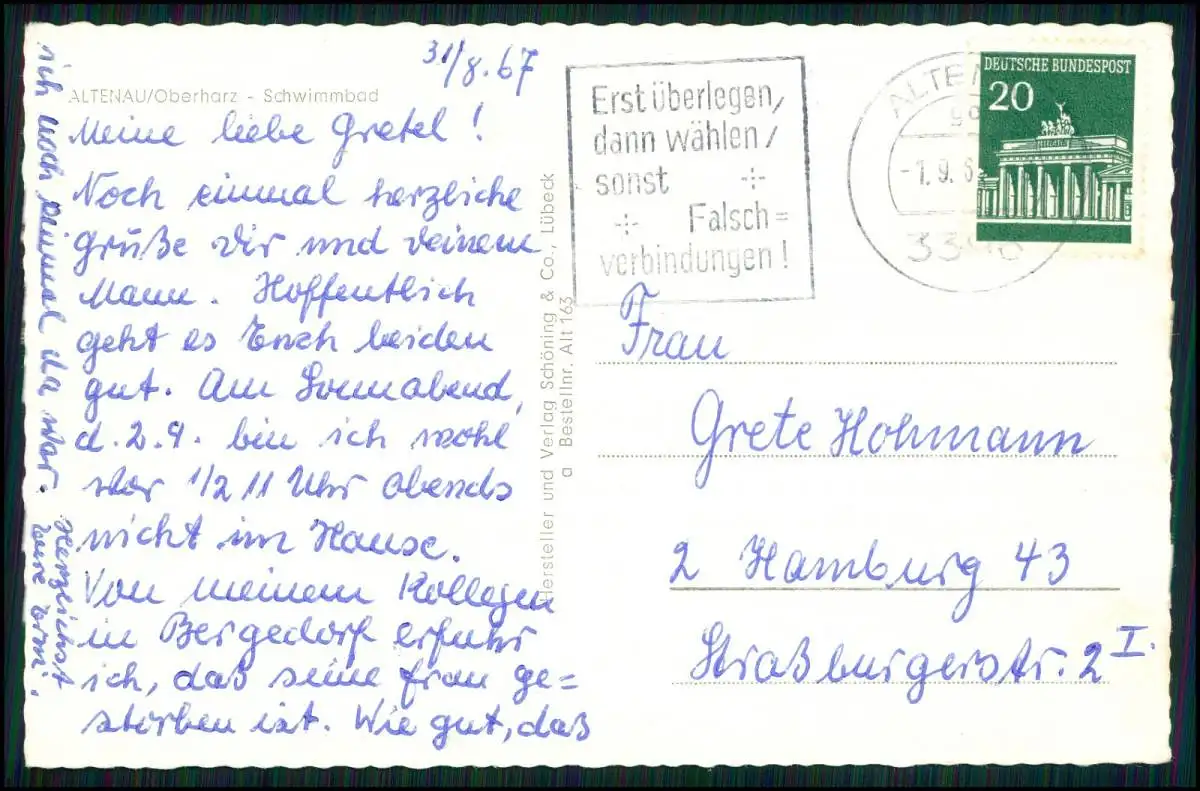 31/8.67
ALTENAU/Oberharz - Schwimmbad
Meine liebe Gretel!
Noch einmal herzliche
Grüße Dir und Deinem
Mann. Hoffentlich
geht es Euch beiden
gut. Am Sonnabend,
d. 2.9. bin ich wohl
vor 1/2 11 Uhr abends
nicht im Hause.
Von meinem Kollegen
in Bergedorf erfuhr
ich, daß seine Frau ge=
storben ist. Wie gut, daß
ich noch einmal da war.
Herzlichst
Eure Erni.
Hersteller und Verlag Schöning & Co., Lübeck
a Bestellnr. Alt 163
Erst überlegen,
dann wählen,
sonst
Falsch=
verbindungen!
ALTEN
-1.9.6
DEUTSCHE BUNDESPOST
20
Frau
Grete Hohmann
2 Hamburg 43
Straßburgerstr. 2 I.